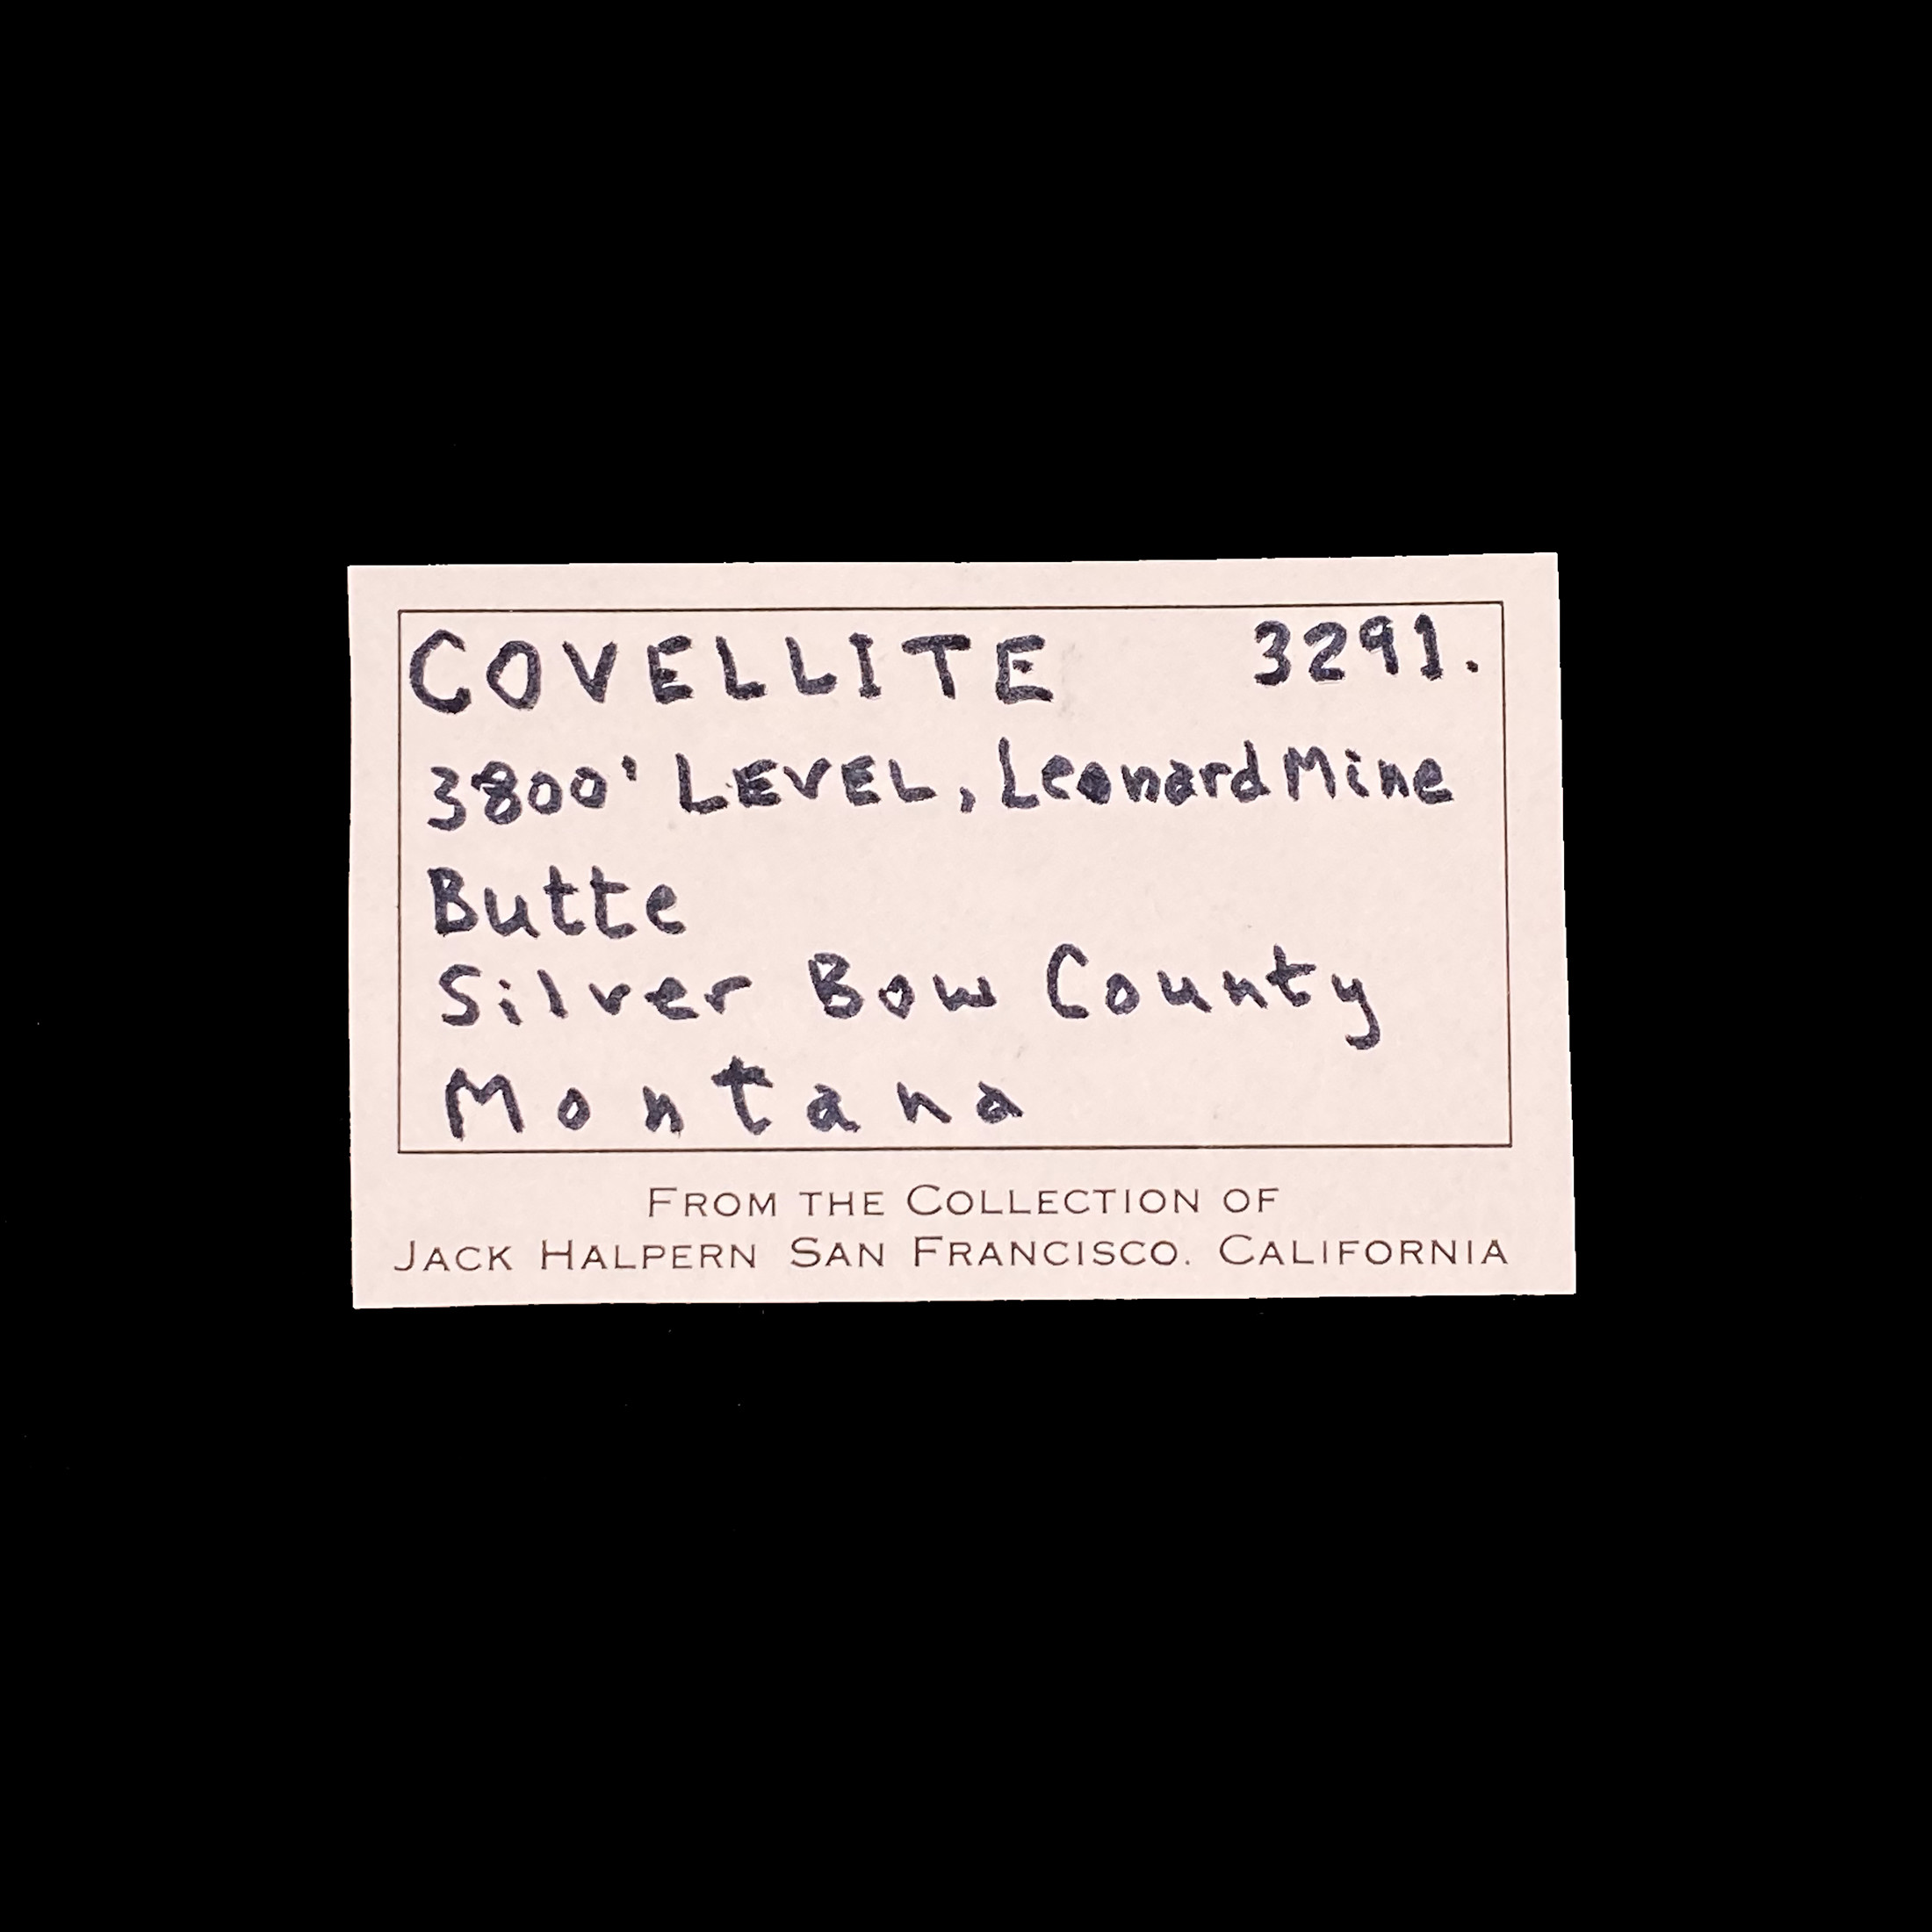 COVELLITE 3291.
3800' LEVEL, Leonard Mine
Butte
Silver Bow County
Montana
FROM THE COLLECTION OF
JACK HALPERN SAN FRANCISCO. CALIFORNIA